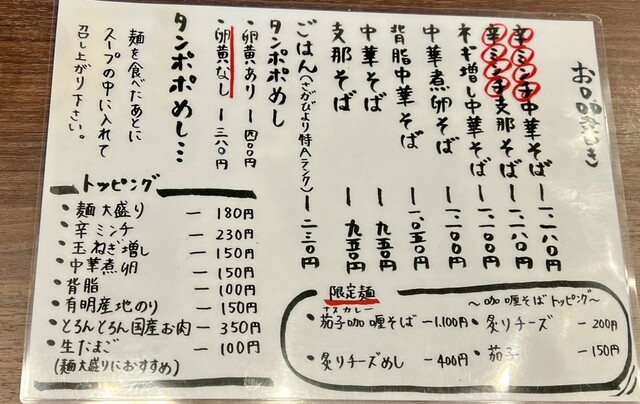 お品書き
辛ミンチ中華そば ー 一、一八〇円
辛ミンチ支那そば ー 一、一八〇円
ネギ増し中華そば ー 一、一〇〇円
中華煮卵そば ー 一、一〇〇円
背脂中華そば ー 一、〇五〇円
中華そば ー 九五〇円
支那そば ー 九五〇円
ごはん(さがびより特Aランク) ー 二三〇円
タンポポめし
・卵黄あり ー 四〇〇円
・卵黄なし ー 三八〇円
タンポポめし…
麺を食べたあとに
スープの中に入れて
召し上がり下さい。
トッピング
・麺大盛り ー 180円
・辛ミンチ ー 230円
・玉ねぎ増し ー 150円
・中華煮卵 ー 150円
・背脂 ー 100円
・有明産地のり ー 150円
・とろんとろん国産お肉 ー 350円
・生たまご ー 100円
(麺大盛りにおすすめ)
限定麺
ナスカレー
・茄子咖喱そば ー 1,100円
・炙りチーズめし ー 400円
〜咖喱そばトッピング〜
・炙りチーズ ー 200円
・茄子 ー 150円